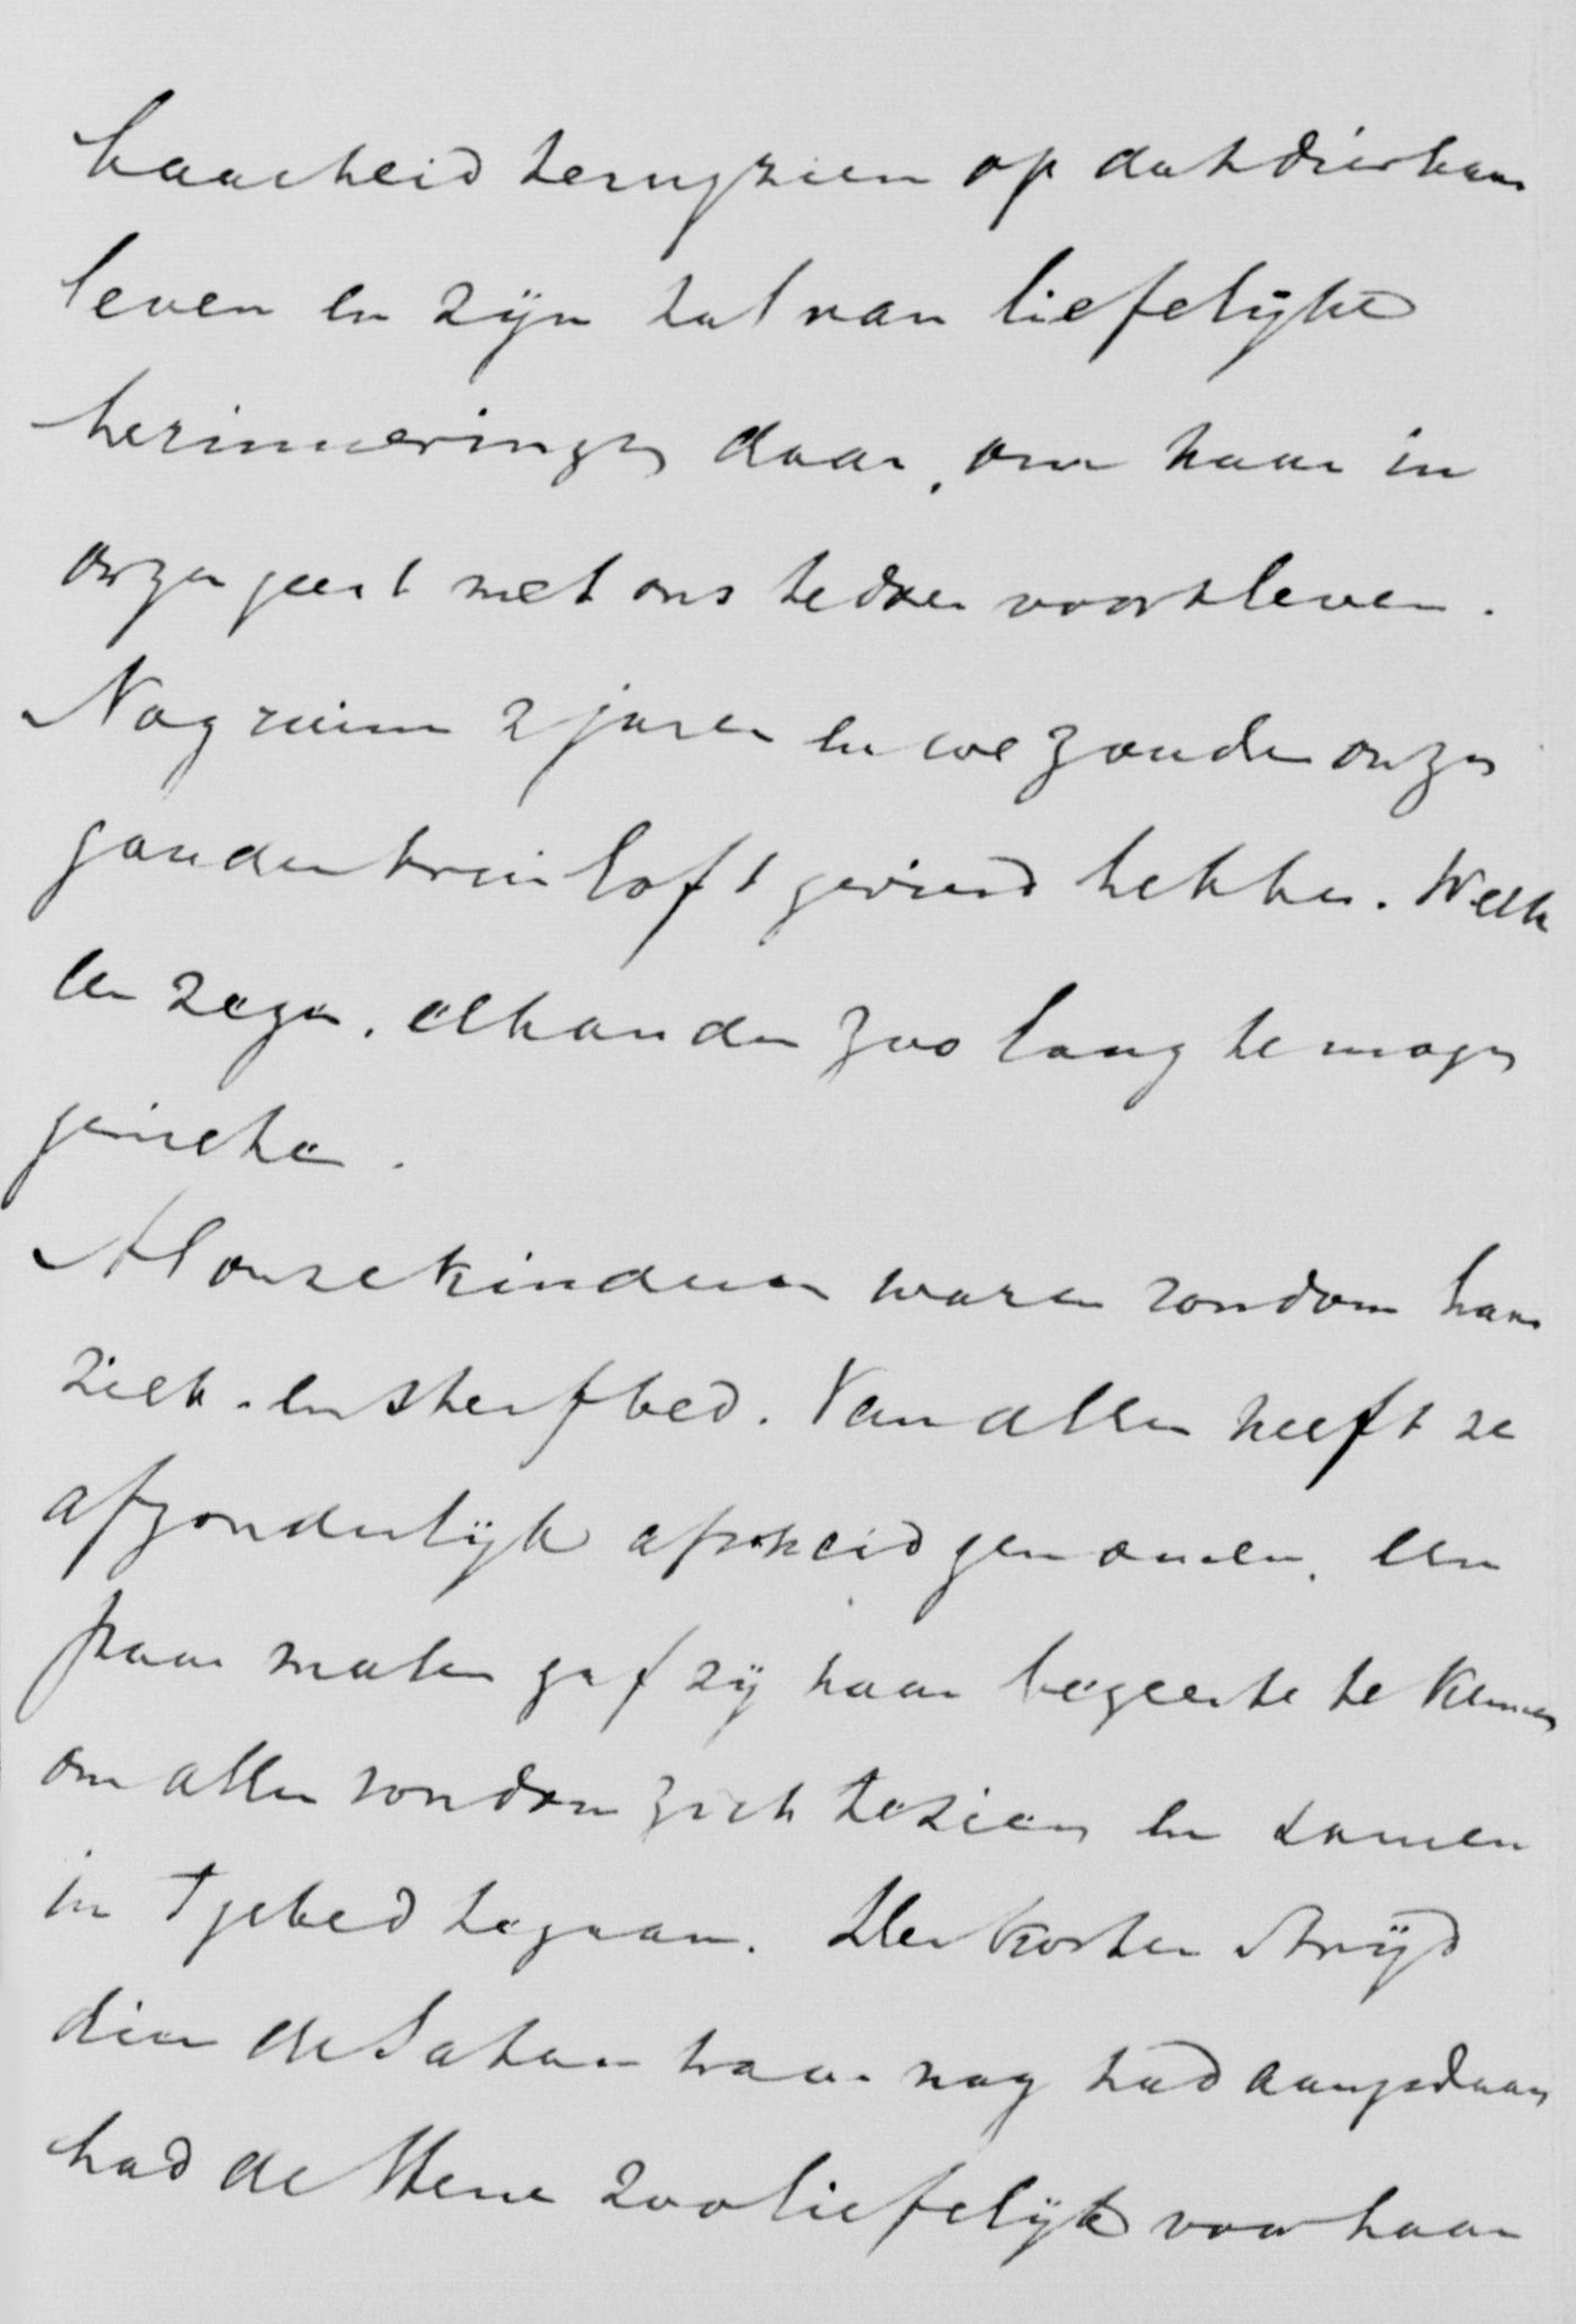 baarheid terugzien op dat dierbaar
leven en zijn tal van liefelijke
herinneringen daar, om haar in
onzen geest met ons te doen voortleven.
Nog ruim 2 jaren en we zouden onze
gouden bruiloft gevierd hebben. Welk
een zegen, elkander zoo lang te mogen
genieten.
Al onze kinderen waren rondom haar
ziek- en sterfbed. Van allen heeft ze
afzonderlijk afscheid genomen, een
paar malen gaf zij haar begeerte te kennen
om allen rondom zich te zien en samen
in 't gebed te gaan. Den korten strijd
dien de Satan haar nog had aangedaan
had de Heere zoo liefelijk voor haar